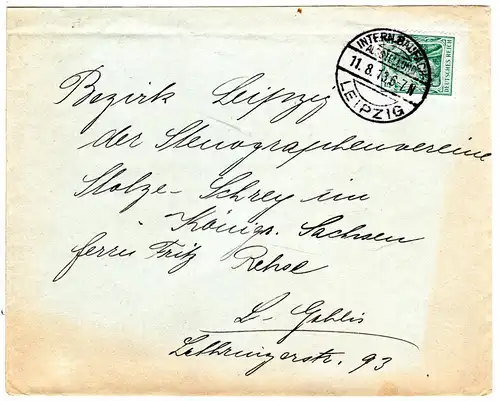 INTERN. BAUFACH
AUSSTELLUNG
11. 8. 13. 6-7 N
LEIPZIG
DEUTSCHES REICH
Bezirk Leipzig
der Stenographenvereine
Stolze-Schrey im
Königr. Sachsen
Herrn Fritz Rehse
L-Gohlis
Lothringerstr. 93